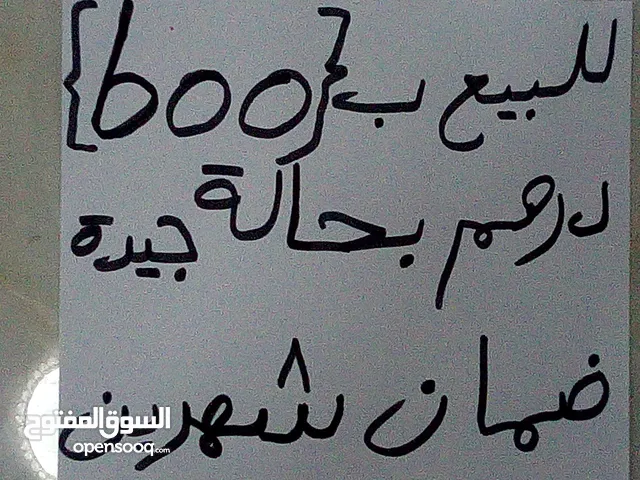 للبيع ب {600}
درهم بحالة جيدة
ضمان شهرين
السوق المفتوح
opensooq.com